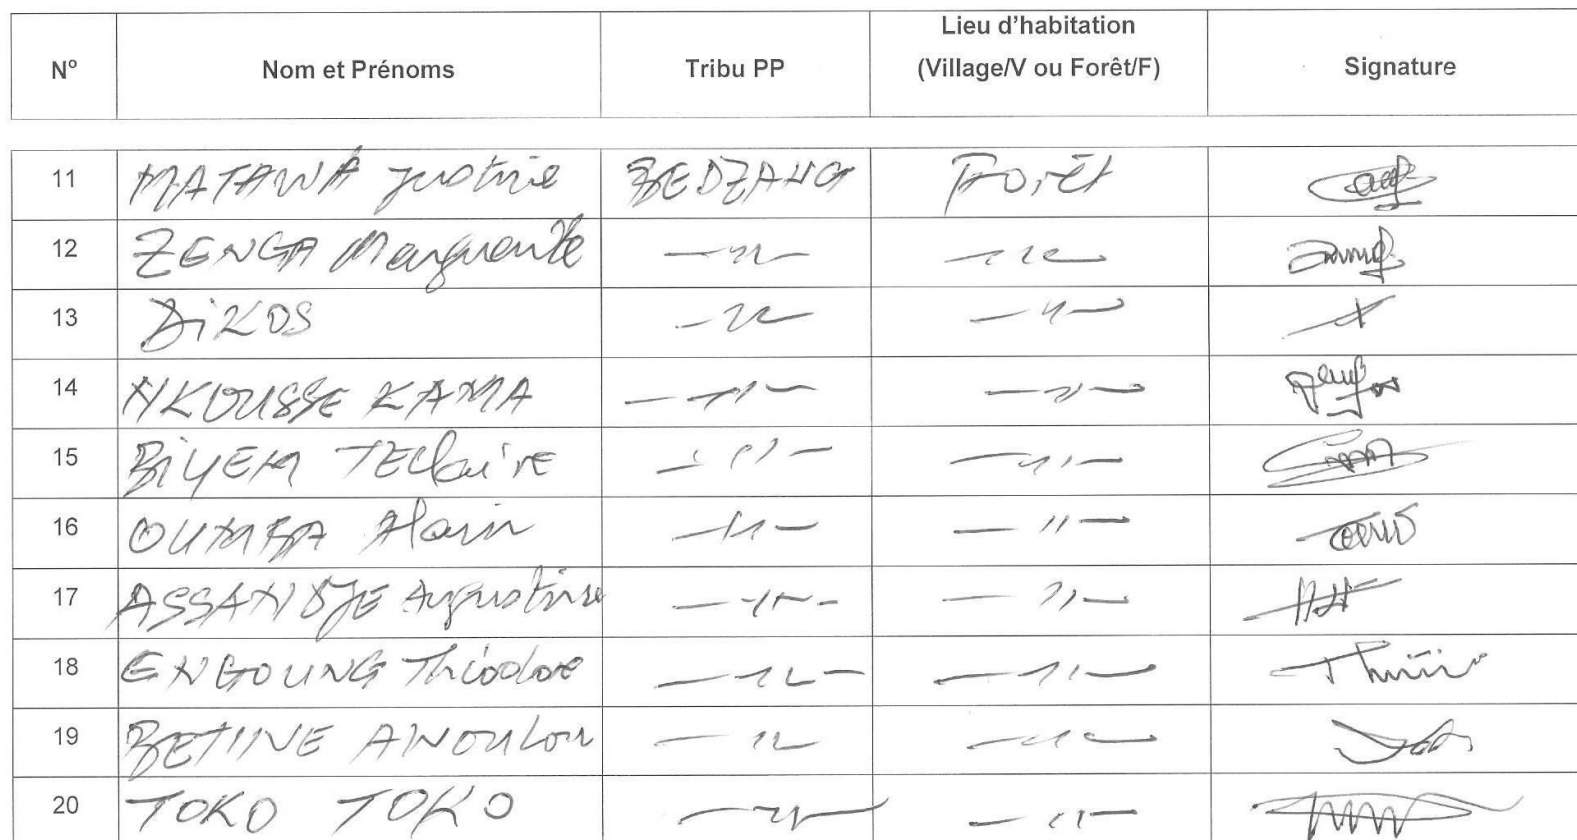 N° Nom et Prénoms Tribu PP Lieu d'habitation (Village/V ou Forêt/F) Signature
11 MATAWA Justine BEDZANG Forêt
12 ZENGA Marguerite —〃— —〃—
13 DIKOS —〃— —〃—
14 NKOUSSE KAMA —〃— —〃—
15 BIYEM TEClaire —〃— —〃—
16 OUMBA Alain —〃— —〃—
17 ASSANDJE Augustine —〃— —〃—
18 ENGOUNG Théodore —〃— —〃—
19 BETIINE —〃— —〃—
20 TOKO TOKO —〃— —〃—